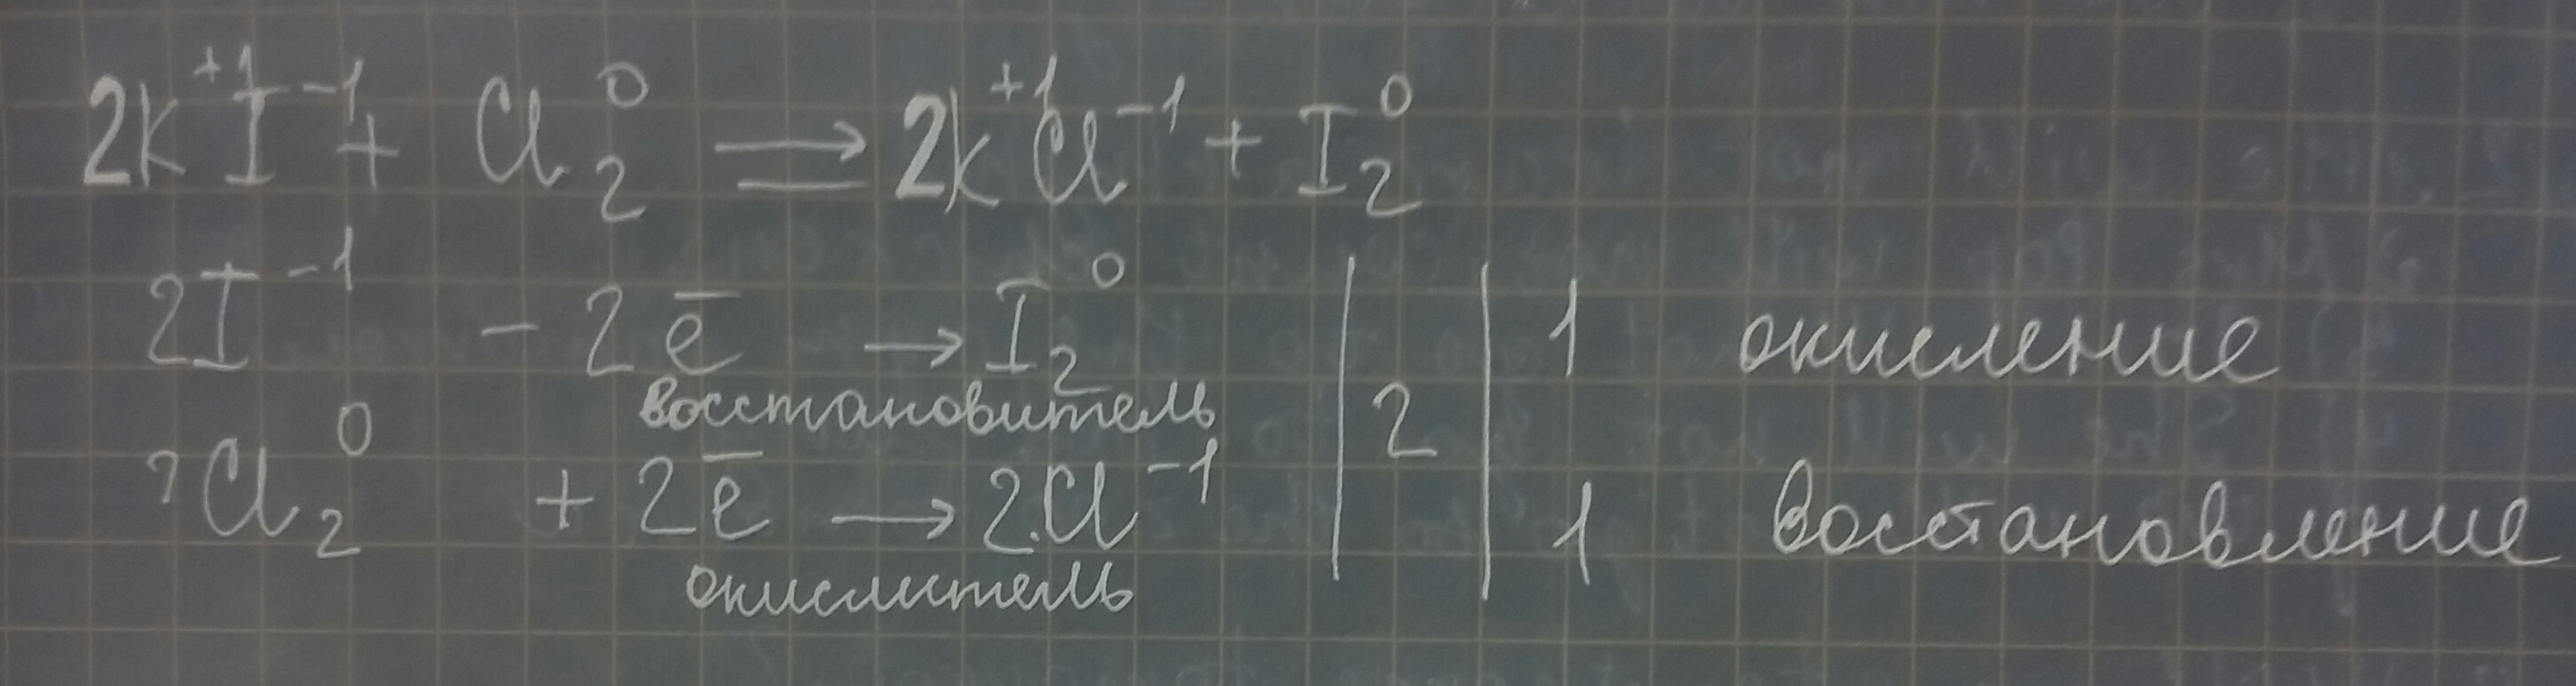 2K⁺¹I⁻¹ + Cl₂⁰ ⇒ 2K⁺¹Cl⁻¹ + I₂⁰
2I⁻¹ − 2ē → I₂⁰ | 2 | 1 окисление
восстановитель
Cl₂⁰ + 2ē → 2Cl⁻¹ | | 1 восстановление
окислитель